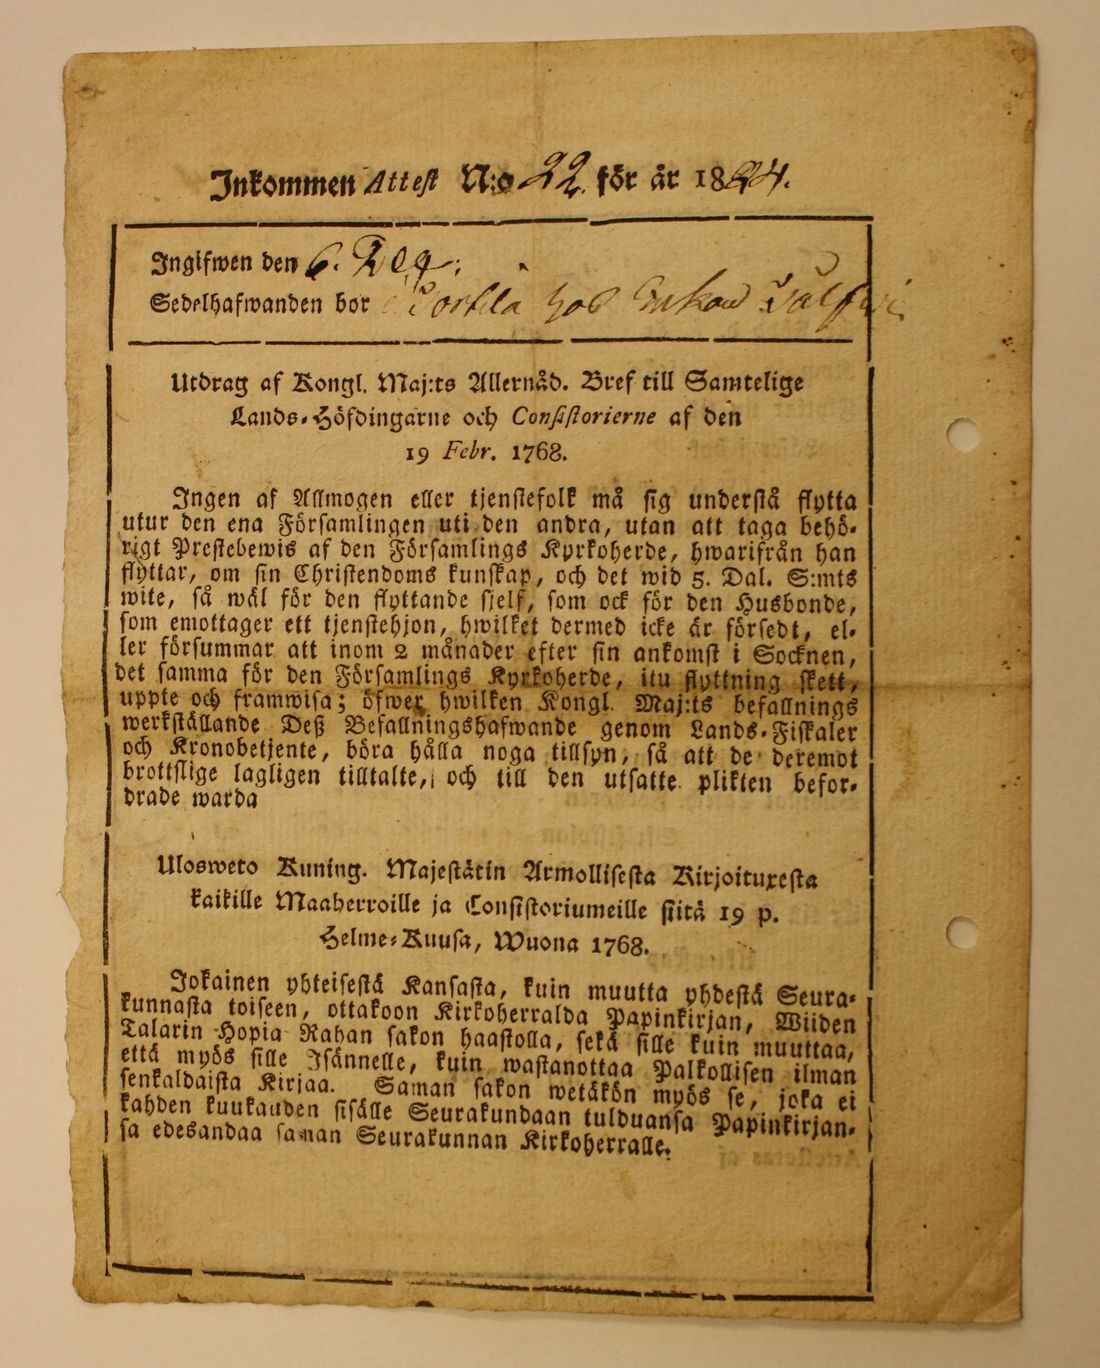 Inkommen Attest N:o 22. för år 1824.
Ingifwen den 6.
Sedelhafwanden bor
Utdrag af Kongl. Maj:ts Allernåd. Bref till Samtelige
Lands-Höfdingarne och Consistorierne af den
19 Febr. 1768.
Ingen af Allmogen eller tjenstefolk må sig understå flytta
utur den ena Församlingen uti den andra, utan att taga behö-
rigt Prestebewis af den Församlings Kyrkoherde, hwarifrån han
flyttar, om sin Christendoms kunskap, och det wid 5. Dal. S:mts
wite, så wäl för den flyttande sjelf, som ock för den Husbonde,
som emottager ett tjenstehjon, hwilket dermed icke är försedt, el-
ler försummar att inom 2 månader efter sin ankomst i Socknen,
det samma för den Församlings Kyrkoherde, itu flyttning skett,
uppte och framwisa; öfwer hwilken Kongl. Maj:ts befallnings
werkställande Deß Befallningshafwande genom Lands-Fiskaler
och Kronobetjente, böra hålla noga tillsyn, så att de deremot
brottslige lagligen tilltalte, och till den utsatte plikten befor-
drade warda
Ulosweto Kuning. Majestätin Armollisesta Kirjoituxesta
kaikille Maaherroille ja Consistoriumeille siitä 19 p.
Helme-Kuusa, Wuona 1768.
Jokainen yhteisestä Kansasta, kuin muutta yhdestä Seura-
kunnasta toiseen, ottakoon Kirkoherralda Papinkirjan, Wiiden
Talarin Hopia Rahan sakon haastolla, sekä sille kuin muuttaa,
että myös sille Isännelle, kuin wastanottaa Palkollisen ilman
senkaldaista Kirjaa. Saman sakon wetäkön myös se, joka ei
kahden kuukauden sisälle Seurakundaan tulduansa Papinkirjan-
sa edesandaa saman Seurakunnan Kirkoherralle.